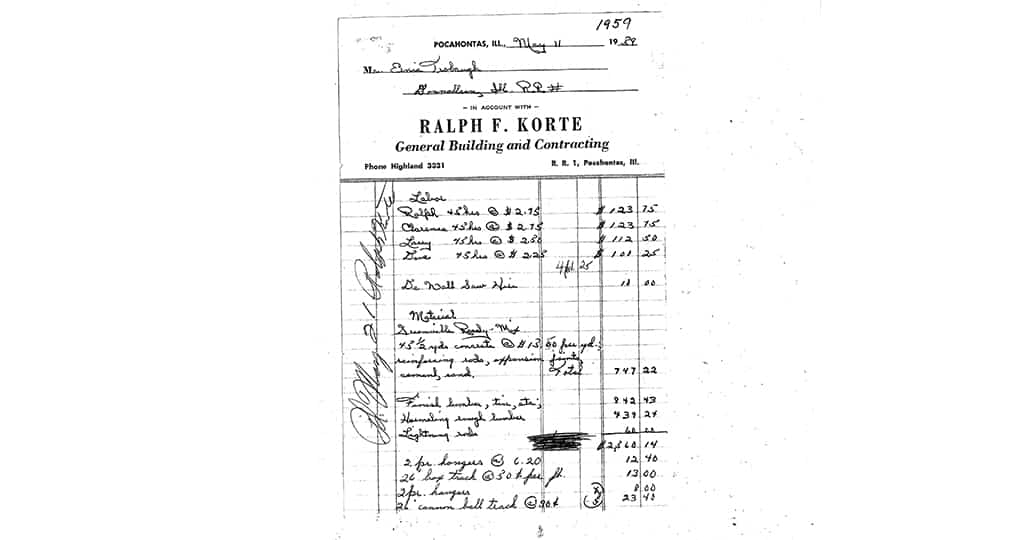 1959
POCAHONTAS, ILL., May 11 1959
Mr. Ernie
Ill. R.R. #
— IN ACCOUNT WITH —
RALPH F. KORTE
General Building and Contracting
Phone Highland 3321 R. R. 1, Pocahontas, Ill.
Labor
Ralph 45 hrs @ $2.75 $ 123 75
Clarence 45 hrs @ $2.75 $ 123 75
Larry 45 hrs @ $ 2.50 $ 112 50
45 hrs @ $ 2.25 $ 101 25
461 25
De Walt Saw Hire 18 00
Material
Greenville Ready-Mix
45 1/2 yds concrete @ $13.50 per yd.;
reinforcing rods, expansion joints,
cement, sand. Total 747 22
Finish lumber, tin, etc; 842 43
rough lumber 439 24
Lightning rods 60 00
$2,560 14
2 pr. hangers @ 6.20 12 40
26' box track @ 50¢ per ft. 13 00
2 pr. hangers 8 00
26' cannon ball track @ 90¢ 23 40
Pd May 21 Ralph Korte